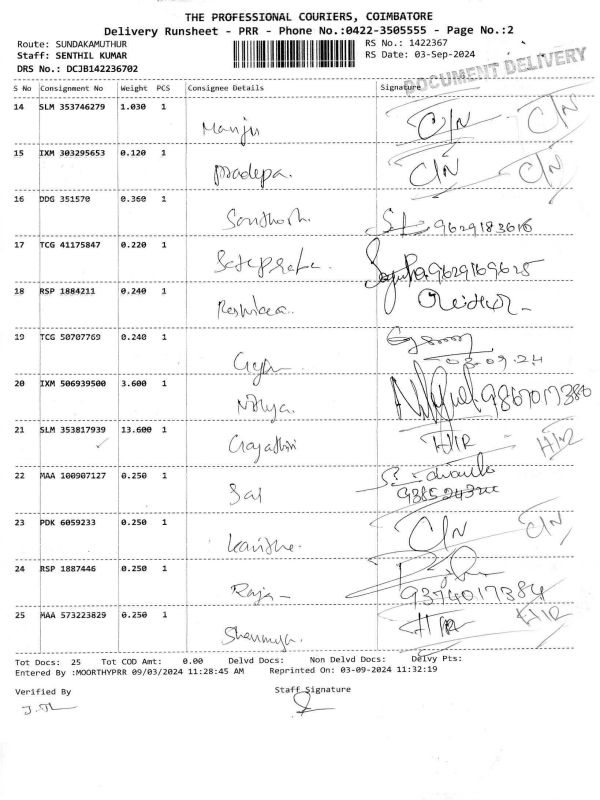 THE PROFESSIONAL COURIERS, COIMBATORE
Delivery Runsheet - PRR - Phone No.:0422-3505555 - Page No.:2
Route: SUNDAKAMUTHUR
RS No.: 1422367
Staff: SENTHIL KUMAR
RS Date: 03-Sep-2024
DRS No.: DCJB142236702
DOCUMENT DELIVERY
S No Consignment No Weight PCS Consignee Details Signature
14 SLM 353746279 1.030 1
Manju C/N C/N
15 IXM 303295653 0.120 1
Pradeepa. C/N C/N
16 DDG 351570 0.360 1
Santhosh. 9629183616
17 TCG 41175847 0.220 1
9629169625
18 RSP 1884211 0.240 1
19 TCG 50707769 0.240 1
03.09.24
20 IXM 506939500 3.600 1
Nithya. 9867017380
21 SLM 353817939 13.600 1
Gayathiri H/R H/R
22 MAA 100907127 0.250 1
Sai
23 PDK 6059233 0.250 1
C/N C/N
24 RSP 1887446 0.250 1
Raja 9374017384
25 MAA 573223829 0.250 1
H/R H/R
Tot Docs: 25 Tot COD Amt: 0.00 Delvd Docs: Non Delvd Docs: Delvy Pts:
Entered By :MOORTHYPRR 09/03/2024 11:28:45 AM Reprinted On: 03-09-2024 11:32:19
Verified By Staff Signature